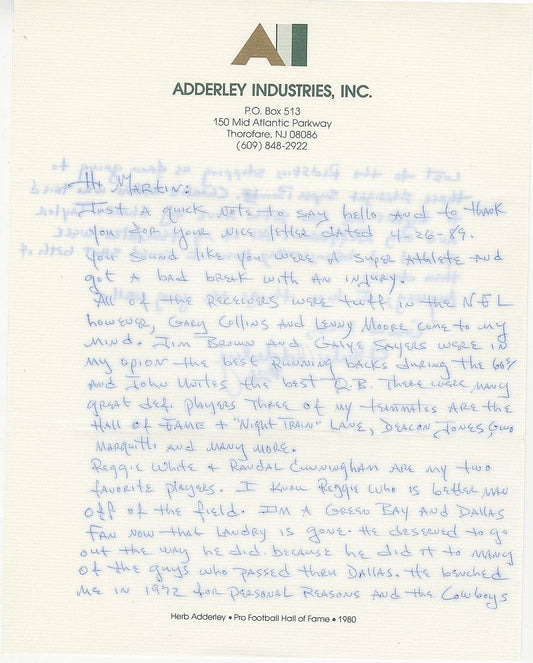 ADDERLEY INDUSTRIES, INC.
P.O. Box 513
150 Mid Atlantic Parkway
Thorofare, NJ 08086
(609) 848-2922
Hi Martin:
Just a quick note to say hello and to thank
you for your nice letter dated 4-26-89.
You sound like you were a super athlete and
got a bad break with an injury.
All of the receivers were tuff in the NFL
however, Gary Collins and Lenny Moore come to my
mind. Jim Brown and Gale Sayers were in
my opion the best running backs during the 60s/
and John Unites the best Q.B. There were many
great def. players three of my teammates are the
Hall of Fame + "Night Train" Lane, Deacon Jones, Gino
Marquitti and many more.
Reggie White + Randal Cunningham are my two
favorite players. I know Reggie who is better man
off of the field. I'm a Green Bay and Dallas
fan now that Landry is gone. He deserved to go
out the way he did because he did it to many
of the guys who passed thru Dallas. He benched
me in 1972 for personal reasons and the Cowboys
Herb Adderley • Pro Football Hall of Fame • 1980